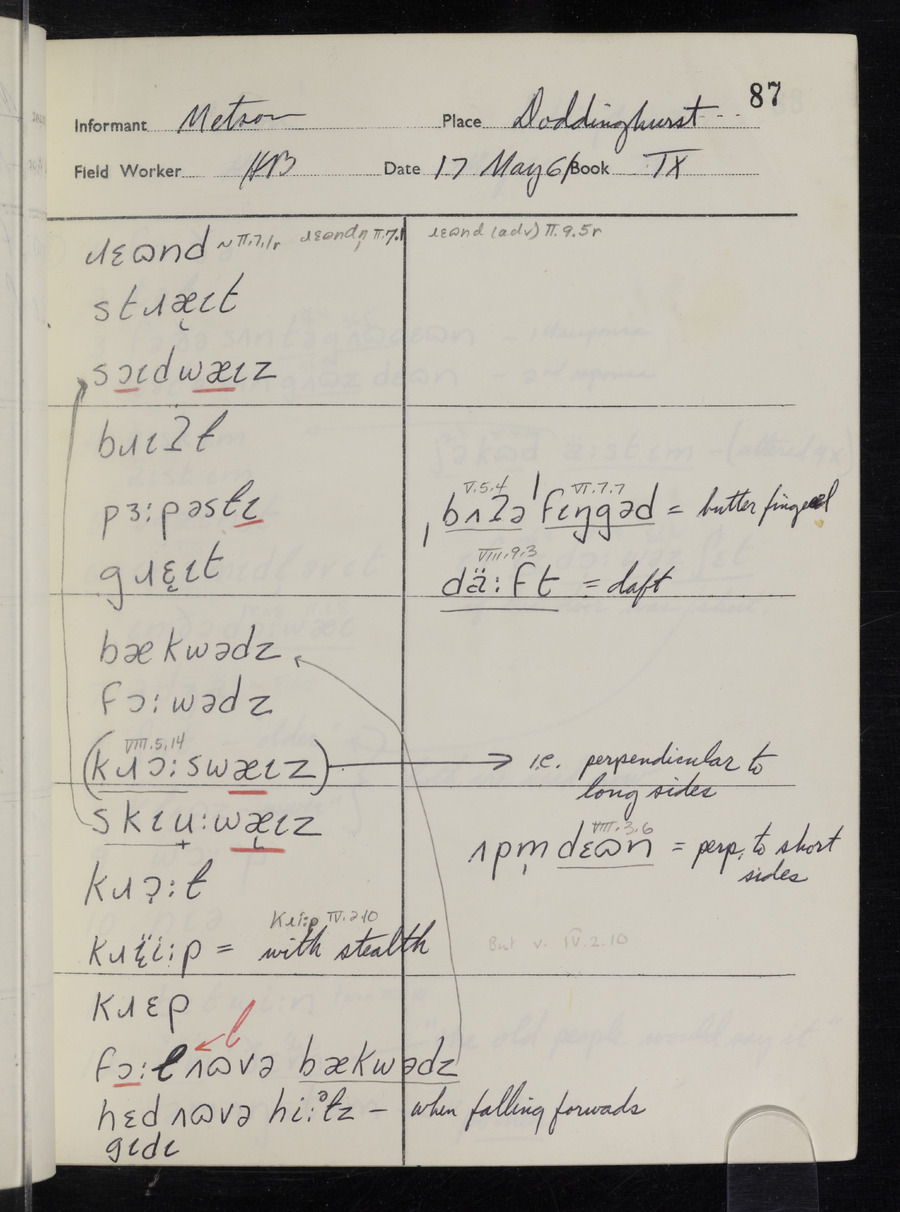 87
Informant Metson Place Doddinghurst
Field Worker HB Date 17 May 61 Book TX
ɹɛɷnd ~ II.7.1r ɹɛɷndn̩ II.7.1 ɹɛɷnd (adv) II.9.5r
stɹæ̨ɪt
sɔɪdwæɪz
bɹɪʔt
pɜ:pəstɪ
ˌbʌʔə ˈfɪŋgəd = butter fingered
V.5.4 VI.7.7
gɹɛ̨ɪt
VIII.9.3
dä:ft = daft
bækwədz
fɔ:wədz
VIII.5.14
(kɹɔ:swæɪz) → i.e. perpendicular to
long sides
skɪu̟:wæ̨ɪz
VIII.3.6
ʌpm̩dɛɷn = perp. to short
sides
kɹɔ̨:t
kɹi:p IV.2.10
kɹɪ̈i:p = with stealth
But v. IV.2.10
kɹɛp
l
fɔ:l ʌɷvə bækwədz
hɛd ʌɷvə hi:ᵊɫz – when falling forwads
gɪdɪ